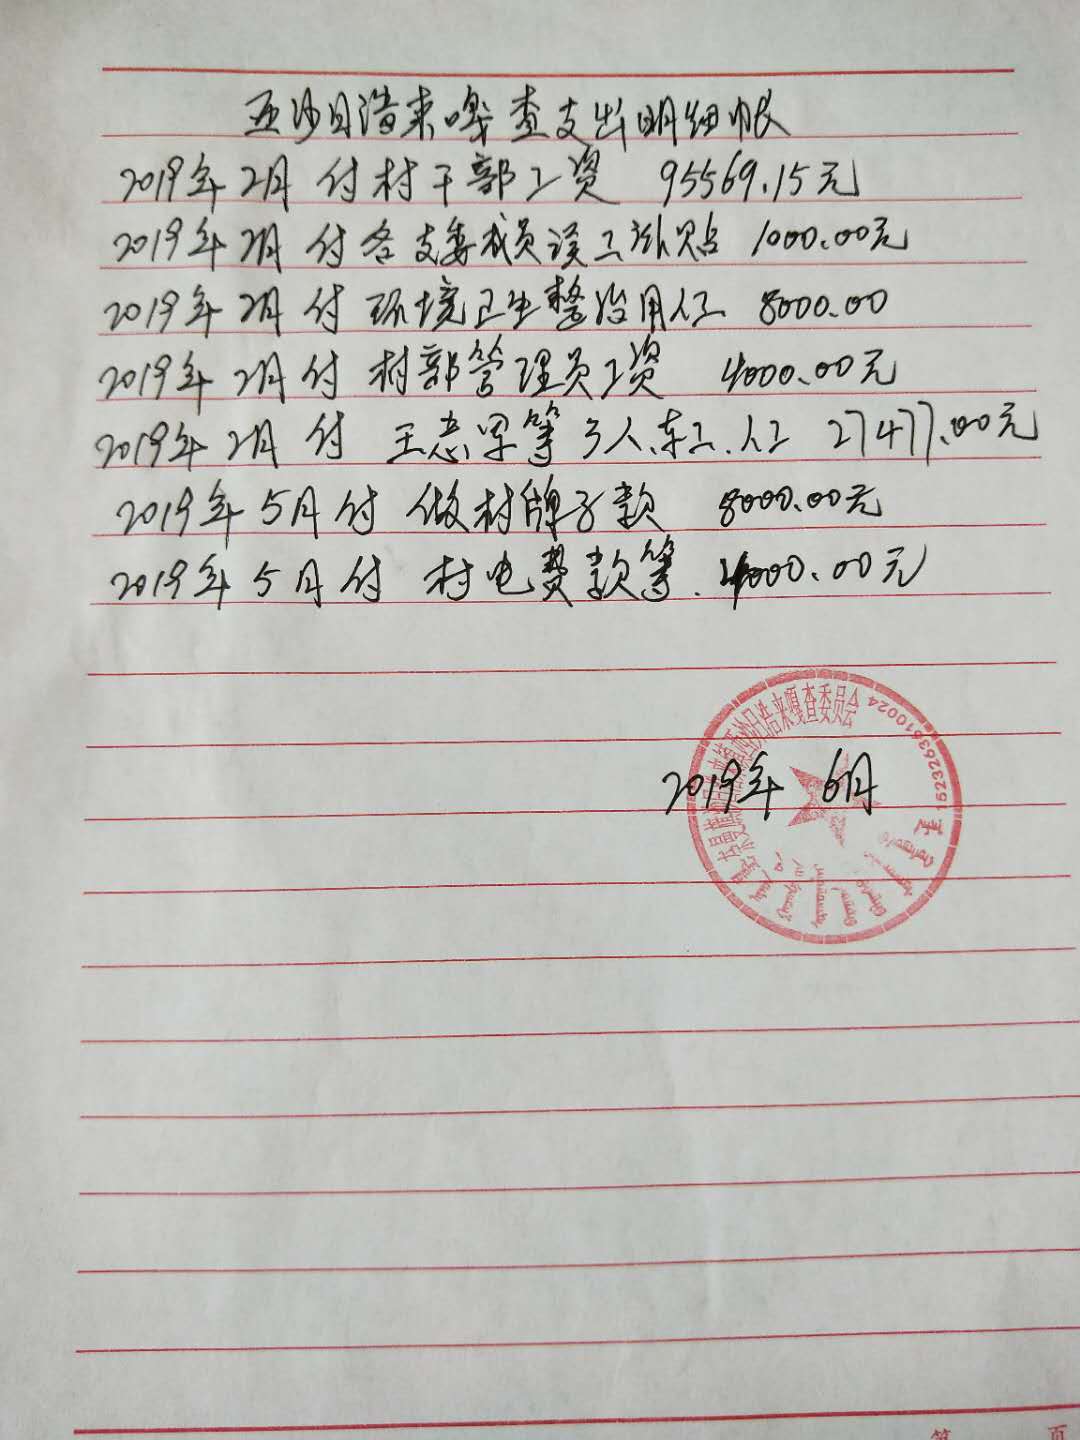 亚沙日浩来嘎查支出明细帐
2019年2月 付村干部工资 95569.15元
2019年2月 付各支委成员误工补贴 1000.00元
2019年2月 付环境卫生整治用人工 8000.00
2019年2月 付村部管理员工资 4000.00元
2019年2月 付 王志军等3人.车工.人工 27477.00元
2019年5月付 做村牌子款 8000.00元
2019年5月付 村电费款等. 4000.00元
浩来嘎查委员会
1523263610024
2019年 6月
第 页